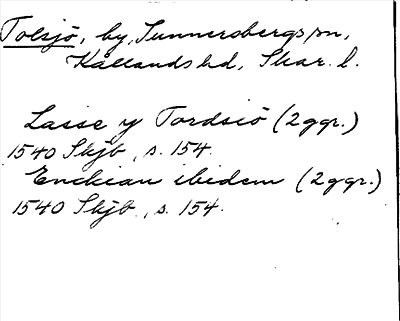 Tolsjö, by, Sunnersbergs sn,
Kållands hd, Skar. l.
Lasse y Tordsiö (2 ggr.)
1540 Skjb, s. 154.
Enckian ibidem (2 ggr.)
1540 Skjb, s. 154.